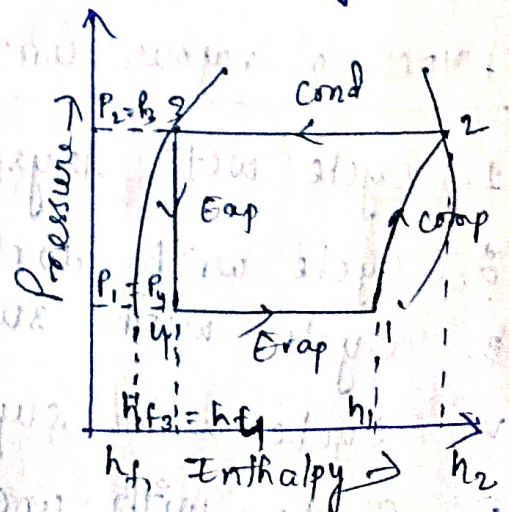 Pressure →
P2 = P3 3
cond
2
Eap
comp
P1 = P4
4
1
Evap
hf3 = hf4
h1
hf1
Enthalpy →
h2